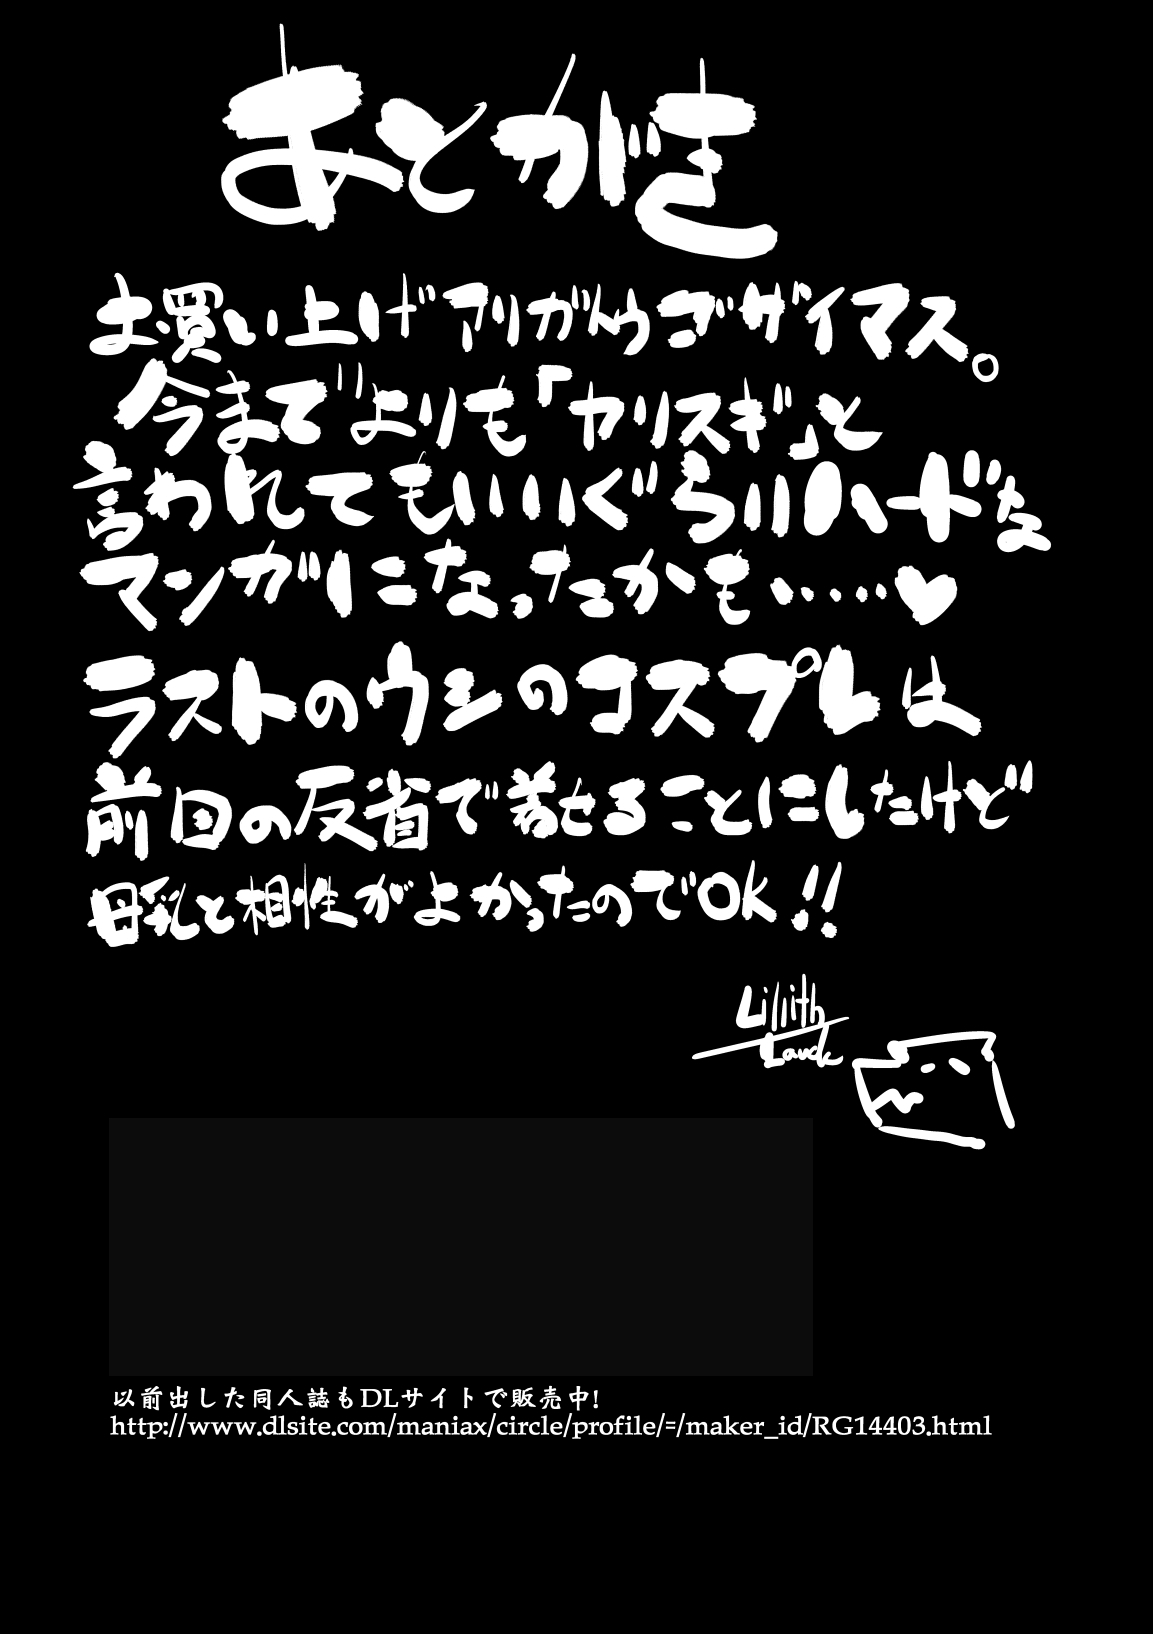 あとがき
お買い上げアリガトウゴザイマス。
今までよりも「ヤリスギ」と
言われてもいいぐらいハードな
マンガになったかも・・・・・♥
ラストのウシのコスプレは
前回の反省で着せることにしたけど
母乳と相性がよかったのでOK!!
Lilith
以前出した同人誌もDLサイトで販売中!
http://www.dlsite.com/maniax/circle/profile/=/maker_id/RG14403.html